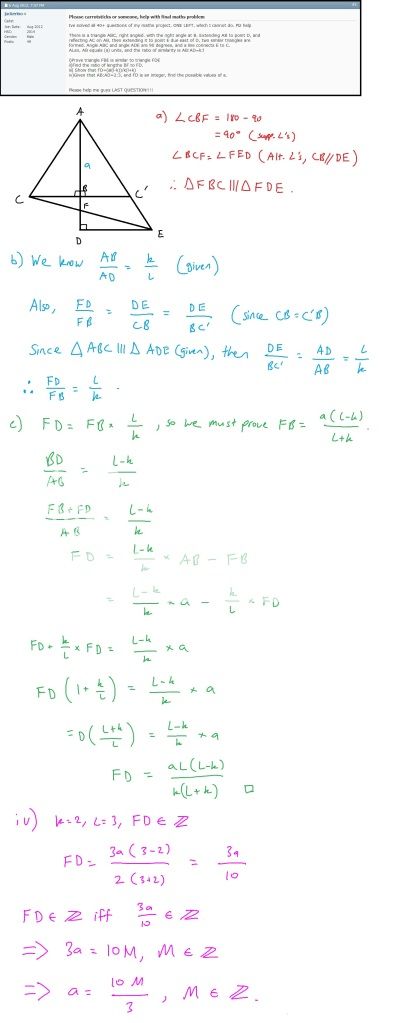 6 Aug 2012, 7:50 PM
#1
Please carrotsticks or someone, help with final maths problem
Cadet
Join Date: Aug 2012
HSC: 2014
Gender: Male
Posts:
Ive solved all 40+ questions of my maths project. ONE LEFT, which I cannot do. PLS help
There is a triangle ABC, right angled, with the right angle at B. Extending AB to point D, and
reflecting AC on AB, then extending it to point E due east of D, two similar triangles are
formed. Angle ABC and angle ADE are 90 degrees, and a line connects E to C.
ALso, AB equals (a) units, and the ratio of similarity is AB:AD=k:l
i)Prove triangle FBE is similar to triangle FDE
ii)Find the ratio of lengths BF to FD.
iii) Show that FD=(al(l-k))/k(l+k)
iv)Given that AB:AD=2:3, and FD is an integer, find the possible values of a.
Please help me guys LAST QUESTION!!!
A
a
C
B
C'
F
D
E
a) ∠CBF = 180 - 90
= 90° (supp. ∠'s)
∠BCF = ∠FED (Alt. ∠'s, CB//DE)
∴ △FBC ||| △FDE.
b) We know AB/AD = k/L (given)
Also, FD/FB = DE/CB = DE/BC' (since CB = C'B)
Since △ABC ||| △ADE (given), then DE/BC' = AD/AB = L/k
∴ FD/FB = L/k.
c) FD = FB × L/k, so we must prove FB = a(L-k)/L+k.
BD/AB = L-k/k
FB+FD/AB = L-k/k
FD = L-k/k × AB - FB
= L-k/k × a - k/L × FD
FD + k/L × FD = L-k/k × a
FD (1 + k/L) = L-k/k × a
=D (L+k/L) = L-k/k × a
FD = aL(L-k)/k(L+k) □
iv) k=2, L=3, FD ∈ ℤ
FD = 3a(3-2)/2(3+2) = 3a/10
FD ∈ ℤ iff 3a/10 ∈ ℤ
=> 3a = 10M, M ∈ ℤ
=> a = 10M/3, M ∈ ℤ.